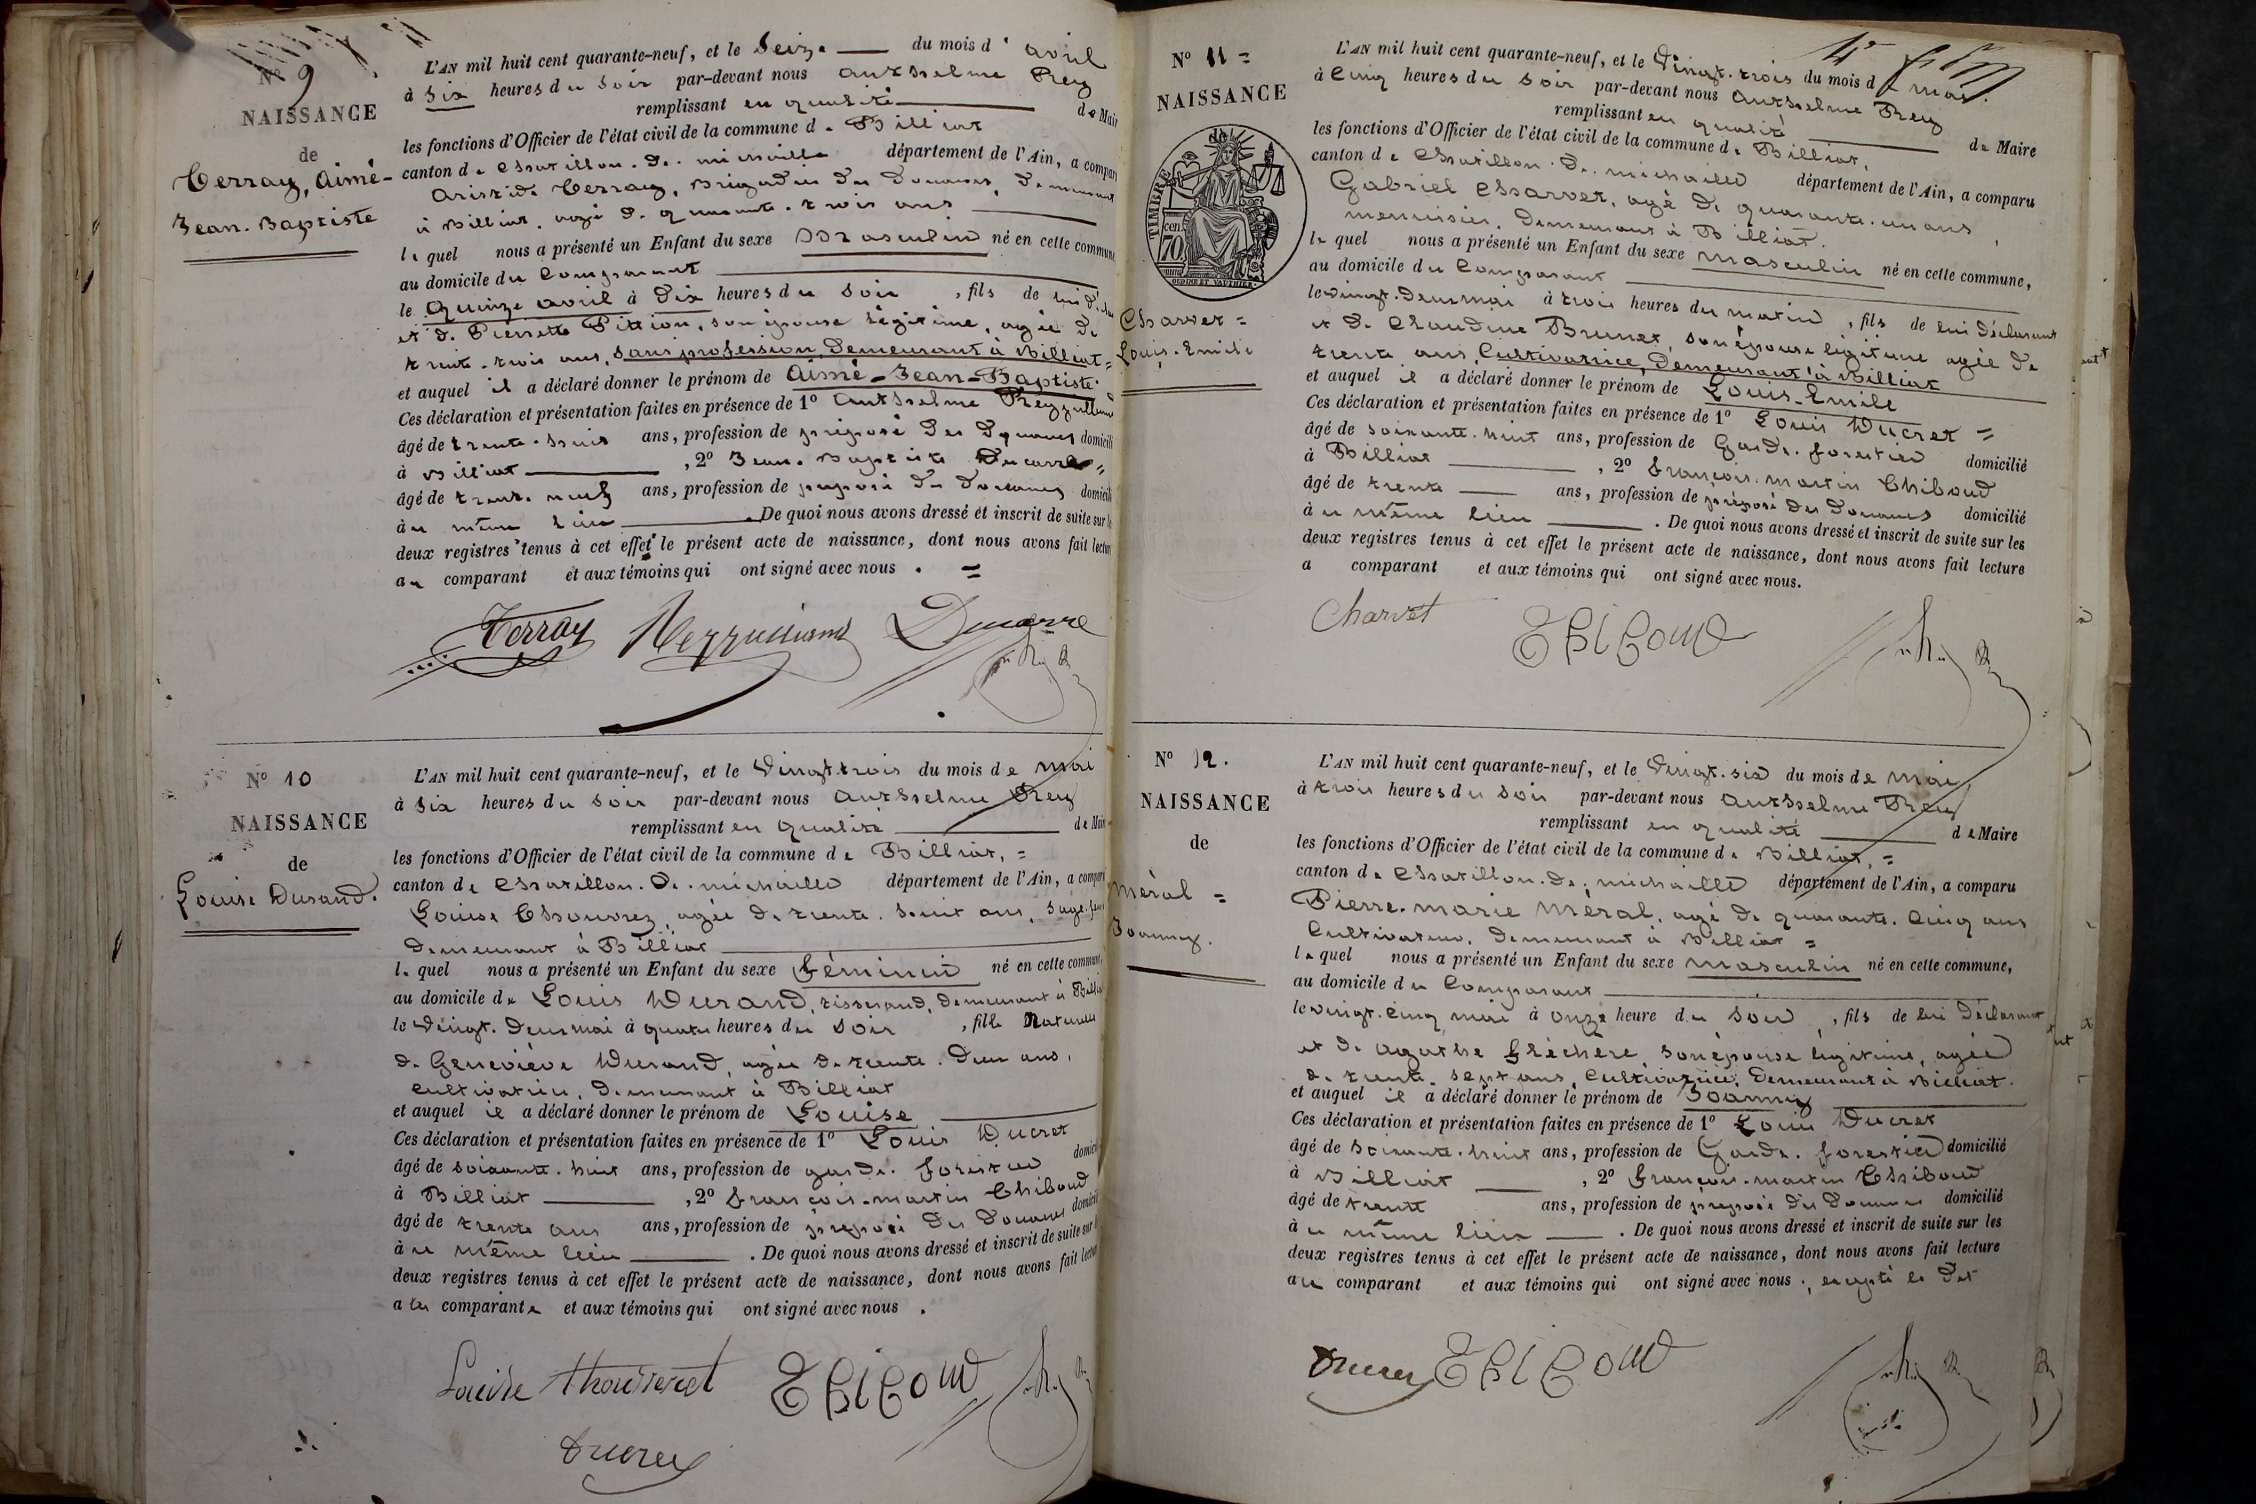 Nº 9
NAISSANCE
de
Terray, Aimé-
Jean-Baptiste
L'AN mil huit cent quarante-neuf, et le Seize du mois d'avril
à six heures du soir par-devant nous Anthelme Rey
remplissant en qualité de Maire
les fonctions d'Officier de l'état civil de la commune de Billiat
canton de Chatillon-de-michaille département de l'Ain, a comparu
Aristide Terray, Brigadier des Douanes, demeurant
à Billiat, agé de quarante-trois ans
lequel nous a présenté un Enfant du sexe Masculin né en cette commune
au domicile du Comparant
le Quinze avril à Dix heures du soir, fils de lui
et de Pierrette Pittion, son épouse légitime, agée de
trente-trois ans, sans profession, demeurant à Billiat =
et auquel il a déclaré donner le prénom de Aimé-Jean-Baptiste
Ces déclaration et présentation faites en présence de 1º Anthelme
âgé de trente-huit ans, profession de préposé des Douanes domicilié
à Billiat, 2º Jean-Baptiste Ducarre =
âgé de trente neuf ans, profession de préposé des Douanes domicilié
à u même lieu. De quoi nous avons dressé et inscrit de suite sur les
deux registres tenus à cet effet le présent acte de naissance, dont nous avons fait lecture
au comparant et aux témoins qui ont signé avec nous. =
Terray Ducarre
Nº 10
NAISSANCE
de
Louise Durand.
L'AN mil huit cent quarante-neuf, et le Vingt trois du mois de mai
à six heures du soir par-devant nous Anthelme Rey
remplissant en qualité de Maire
les fonctions d'Officier de l'état civil de la commune de Billiat, =
canton de Chatillon-de-michaille département de l'Ain, a comparu
Louise agée de trente-huit ans, sage-femme
demeurant à Billiat
lequel nous a présenté un Enfant du sexe féminin né en cette commune,
au domicile de Louis Durand, tisserand, demeurant à Billiat
le Vingt-deux mai à quatre heures du soir, fille Naturelle
de Geneviève Durand, agée de trente-deux ans,
cultivatrice, demeurant à Billiat
et auquel il a déclaré donner le prénom de Louise
Ces déclaration et présentation faites en présence de 1º Louis Ducret
âgé de soixante-huit ans, profession de garde-forestier domicilié
à Billiat, 2º françois-martin Thiboud
âgé de trente ans ans, profession de préposé des Douanes domicilié
à u même lieu. De quoi nous avons dressé et inscrit de suite sur les
deux registres tenus à cet effet le présent acte de naissance, dont nous avons fait lecture
a la comparante et aux témoins qui ont signé avec nous.
Louise Thiboud
Ducret
Nº 11 =
NAISSANCE
de
TIMBRE
70 cen.
Charvet =
Louis-Emile
L'AN mil huit cent quarante-neuf, et le Vingt-trois du mois de mai.
à Cinq heures du soir par-devant nous Anthelme Rey
remplissant en qualité de Maire
les fonctions d'Officier de l'état civil de la commune de Billiat,
canton de Chatillon-de-michaille département de l'Ain, a comparu
Gabriel Charvet, agé de quarante-un ans,
menuisier, demeurant à Billiat.
lequel nous a présenté un Enfant du sexe masculin né en cette commune,
au domicile du Comparant
le Vingt-deux mai à trois heures du matin, fils de lui déclarant
et de Claudine Brunet, son épouse légitime agée de
trente ans, Cultivatrice, demeurant à Billiat
et auquel il a déclaré donner le prénom de Louis-Emile
Ces déclaration et présentation faites en présence de 1º Louis Ducret =
âgé de soixante-huit ans, profession de Garde-forestier domicilié
à Billiat, 2º françois-martin Thiboud
âgé de trente ans, profession de préposé des Douanes domicilié
à u même lieu. De quoi nous avons dressé et inscrit de suite sur les
deux registres tenus à cet effet le présent acte de naissance, dont nous avons fait lecture
a comparant et aux témoins qui ont signé avec nous.
Charvet Thiboud
Nº 12.
NAISSANCE
de
Méral =
Joanny.
L'AN mil huit cent quarante-neuf, et le Vingt-six du mois de mai
à trois heures du soir par-devant nous Anthelme Rey
remplissant en qualité de Maire
les fonctions d'Officier de l'état civil de la commune de Billiat, =
canton de Chatillon-de-michaille département de l'Ain, a comparu
Pierre-marie Méral, agé de quarante-Cinq ans
Cultivateur, demeurant à Billiat =
lequel nous a présenté un Enfant du sexe masculin né en cette commune,
au domicile du Comparant
le Vingt-Cinq mai à onze heure du soir, fils de lui déclarant
et de agathe son épouse légitime, agée
de trente-sept ans, Cultivatrice, demeurant à Billiat.
et auquel il a déclaré donner le prénom de Joanny
Ces déclaration et présentation faites en présence de 1º Louis Ducret
âgé de soixante-huit ans, profession de Garde-forestier domicilié
à Billiat, 2º françois-martin Thiboud
âgé de trente ans, profession de préposé des Douanes domicilié
à u même lieu. De quoi nous avons dressé et inscrit de suite sur les
deux registres tenus à cet effet le présent acte de naissance, dont nous avons fait lecture
au comparant et aux témoins qui ont signé avec nous, excepté le dit
Ducret Thiboud